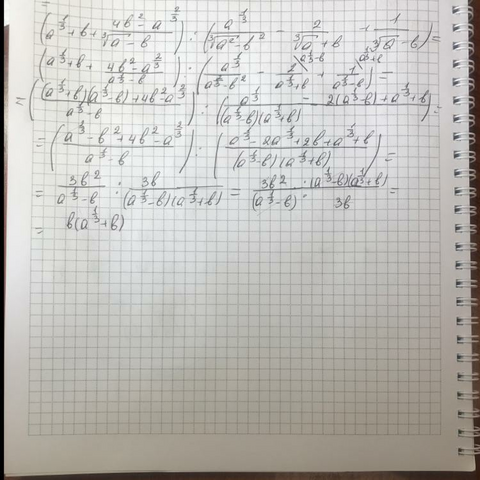 =
(a^{1/3} + b + \frac{4b^2 - a^{2/3}}{\sqrt[3]{a} - b}) : (\frac{a^{1/3}}{\sqrt[3]{a^2} - b^2} - \frac{2}{\sqrt[3]{a} + b} + \frac{1}{\sqrt[3]{a} - b}) =
(a^{1/3} + b + \frac{4b^2 - a^{2/3}}{a^{1/3} - b}) : (\frac{a^{1/3}}{a^{2/3} - b^2} - \frac{2}{a^{1/3} + b} + \frac{1}{a^{1/3} - b}) =
= (\frac{(a^{1/3} + b)(a^{1/3} - b) + 4b^2 - a^{2/3}}{a^{1/3} - b}) : (\frac{a^{1/3} - 2(a^{1/3} - b) + a^{1/3} + b}{(a^{1/3} - b)(a^{1/3} + b)}) =
= (\frac{a^{2/3} - b^2 + 4b^2 - a^{2/3}}{a^{1/3} - b}) : (\frac{a^{1/3} - 2a^{1/3} + 2b + a^{1/3} + b}{(a^{1/3} - b)(a^{1/3} + b)}) =
= \frac{3b^2}{a^{1/3} - b} : \frac{3b}{(a^{1/3} - b)(a^{1/3} + b)} = \frac{3b^2}{(a^{1/3} - b)} : \frac{(a^{1/3} - b)(a^{1/3} + b)}{3b} =
= b(a^{1/3} + b)